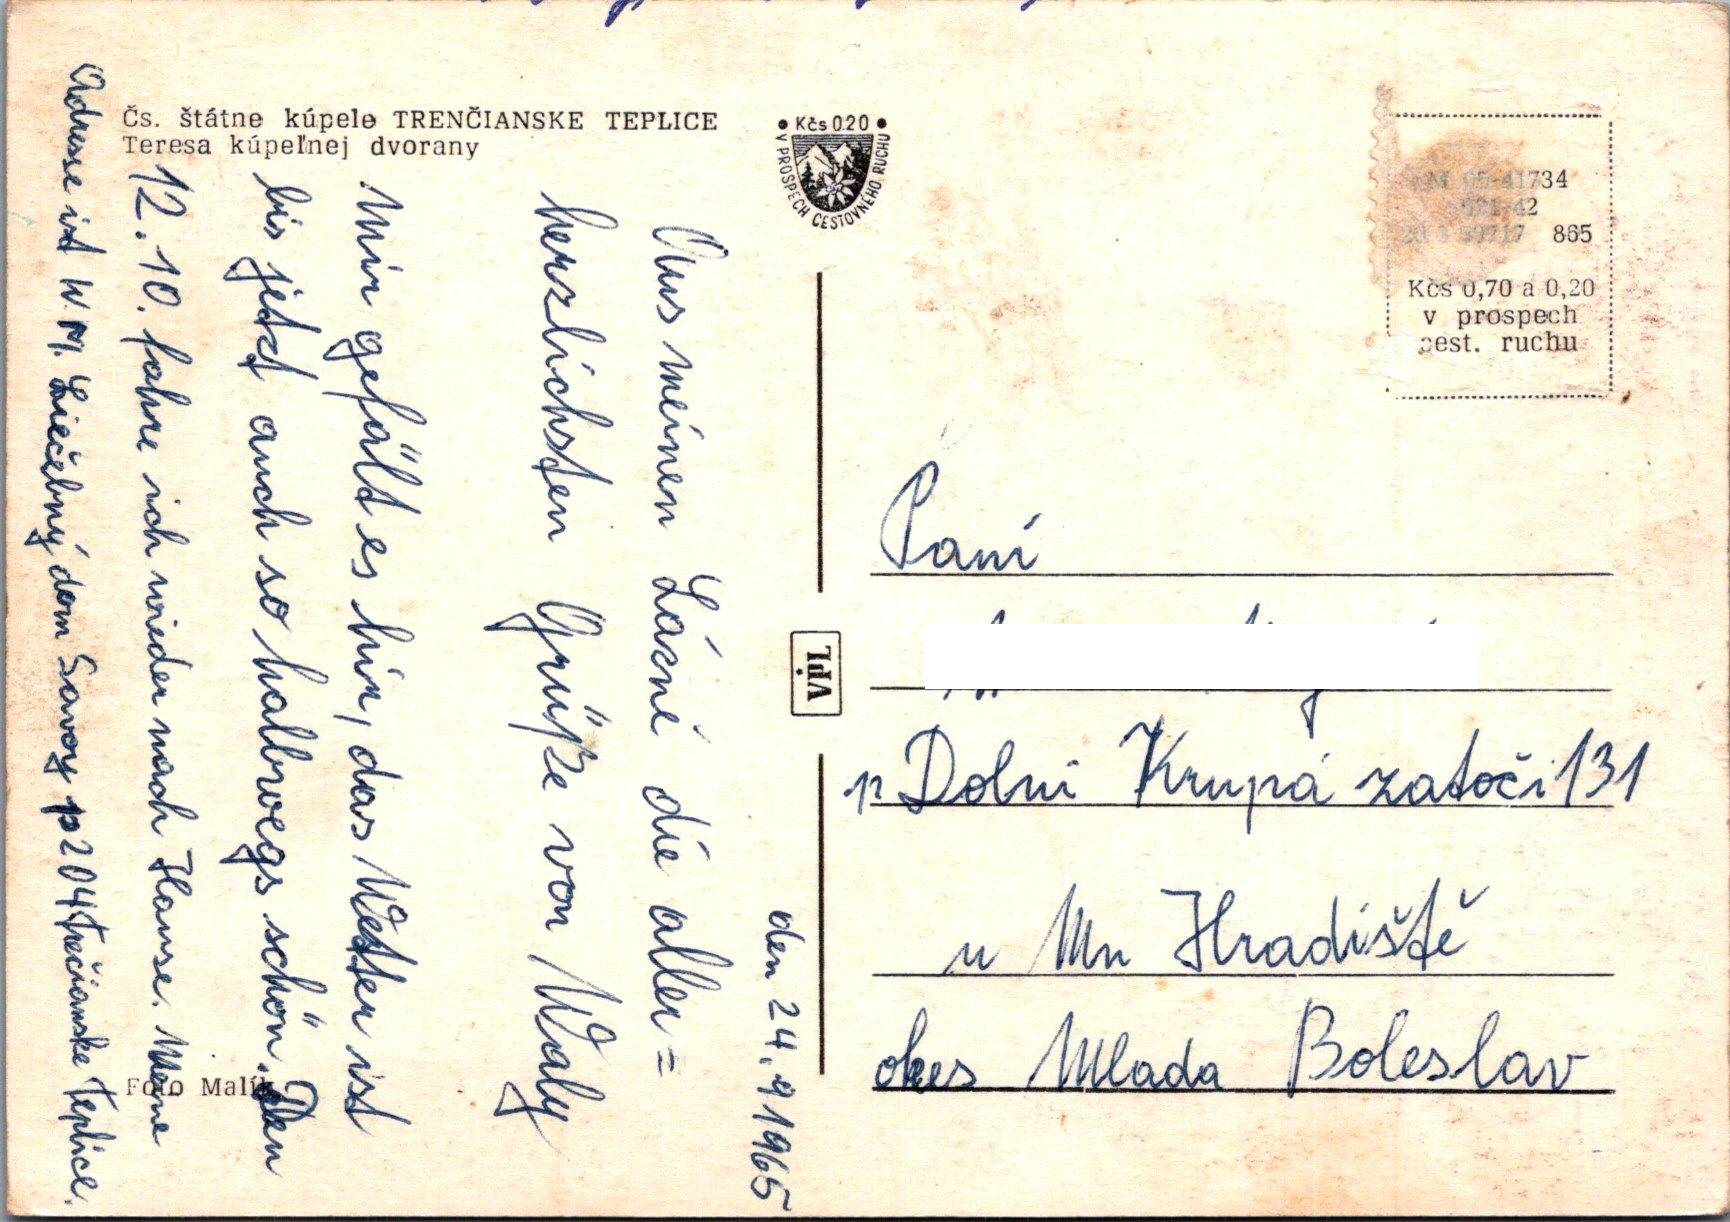 Čs. štátne kúpele TRENČIANSKE TEPLICE
Teresa kúpeľnej dvorany
• Kčs 0.20 •
V PROSPECH CESTOVNÉHO RUCHU
41734
42
59717 865
Kčs 0,70 a 0,20
v prospech
cest. ruchu
den 24. 9 1965
Aus meinen Lázně die aller=
herzlichsten Grüße von Waly
Mir gefält es hir, das Wetter ist
bis jetzt auch so halbwegs schön. Den
12. 10. fahre ich wieder nach Hause. Meine
Adresse ist W. M. Liečebný dom Savoy p 204 Trečianske Teplice.
VPL
Foto Malík
Paní
p Dolni Krupá zatoči 131
u Mn Hradiště
okes Mlada Boleslav